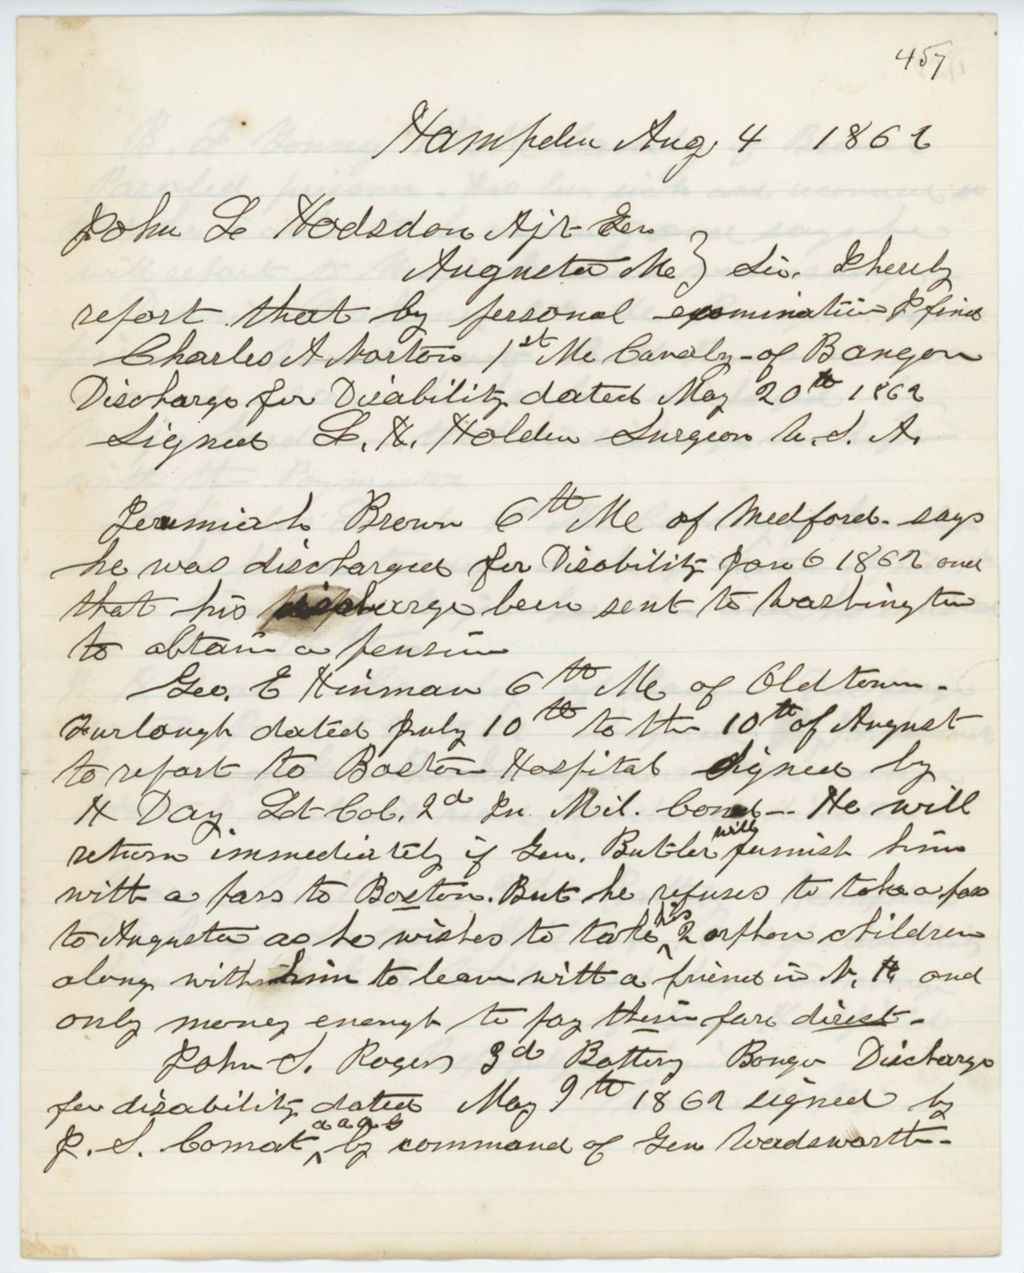 457
Hampden Aug, 4 1862
John L Hodsdon Ajt Gen
Augusta Me } Sir. I hereby
report that by personal examination I find
Charles A Norton 1st Me Cavalry - of Bangor
Discharge for Disability dated May 20th 1862
Signed L. H. Holden Surgeon U. S. A.
Jeremiah Brown 6th Me of Medford - says
he was discharged for Disability Jan 6 1862 and
that his discharge been sent to Washington
to obtain a pension
Geo. E Hinman 6th Me of Oldtown -
Furlough dated July 10th to the 10th of August
to report to Boston Hospital signed by
H Day Lt Col. 2d In. Mil. Comd -- He will
return immediately if Gen. Butler will furnish him
with a pass to Boston. But he refuses to take a pass
to Augusta as he wishes to take his 2 orphan children
along with him to leave with a friend in N. H. and
only money enough to pay their fare direct -
John S. Rogers 3d Battery Bangor Discharge
for disability dated May 9th 1862 signed by
J. S. a a g by command of Gen Wadsworth -